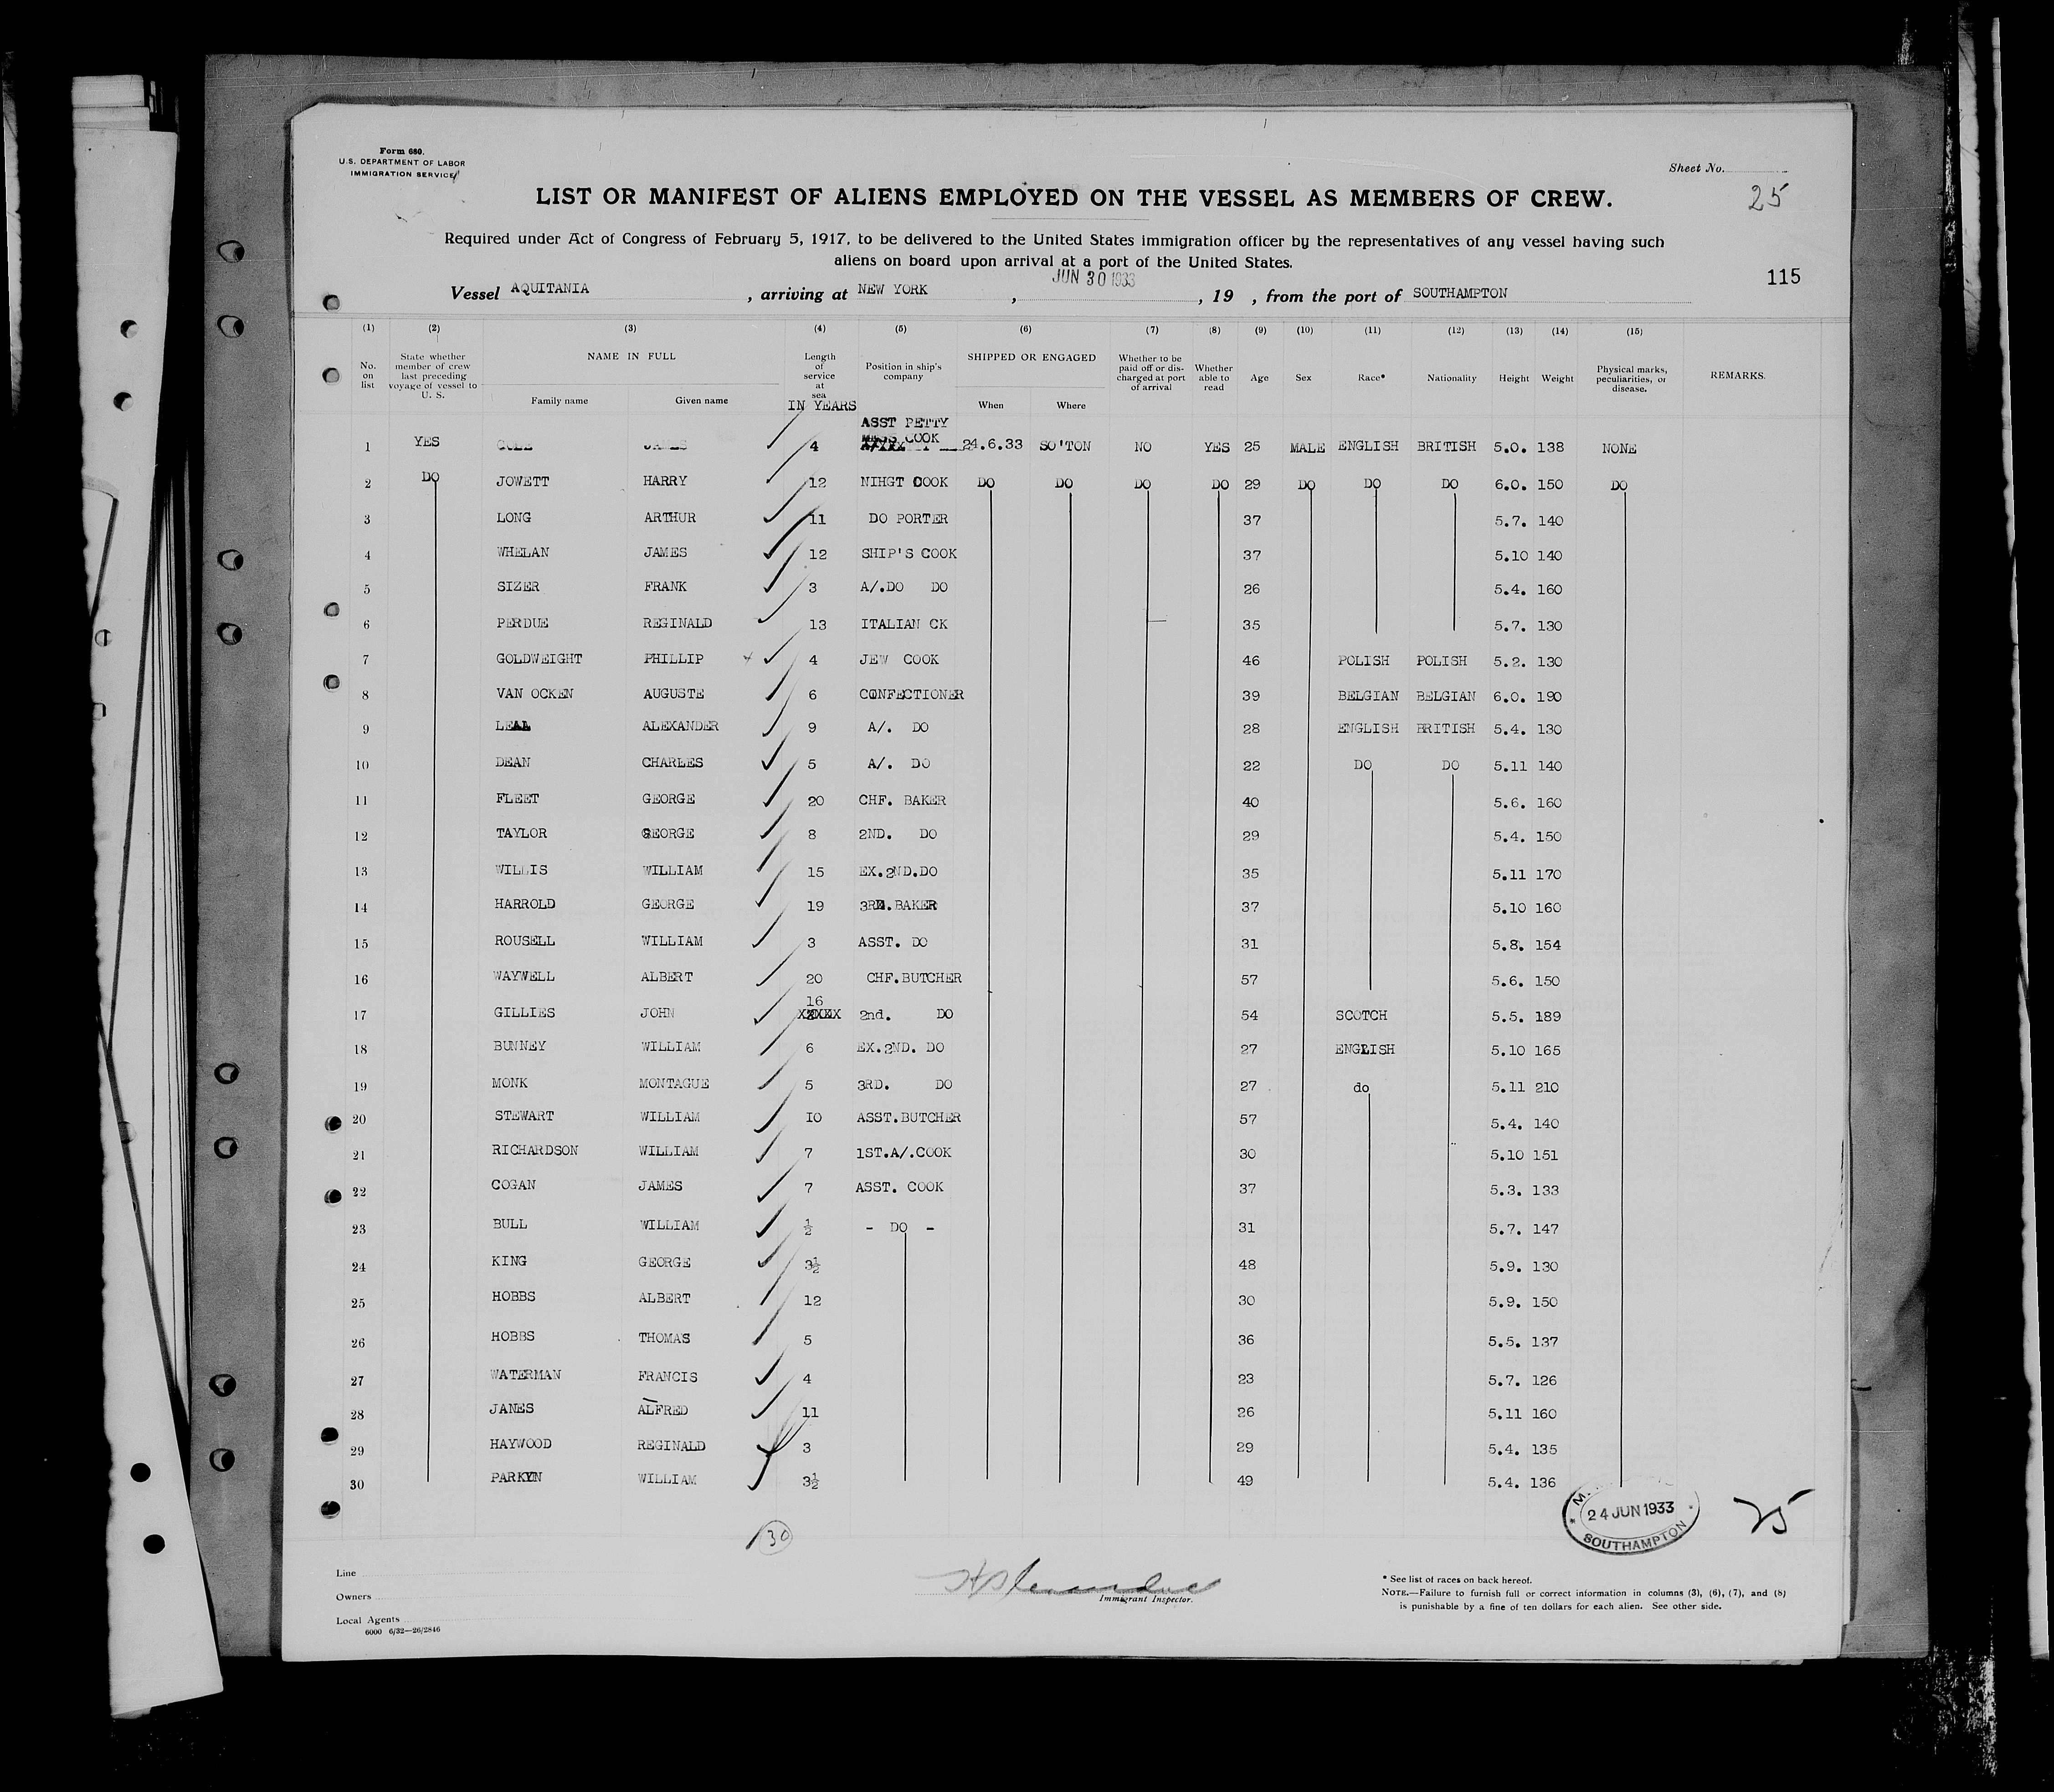 Form 680.
U.S. DEPARTMENT OF LABOR
IMMIGRATION SERVICE
Sheet No.
25
LIST OR MANIFEST OF ALIENS EMPLOYED ON THE VESSEL AS MEMBERS OF CREW.
Required under Act of Congress of February 5, 1917, to be delivered to the United States immigration officer by the representatives of any vessel having such
aliens on board upon arrival at a port of the United States.
115
Vessel AQUITANIA, arriving at NEW YORK, JUN 30 1933, 19 , from the port of SOUTHAMPTON
(1) (2) (3) (4) (5) (6) (7) (8) (9) (10) (11) (12) (13) (14) (15)
No. on list State whether member of crew last preceding voyage of vessel to U. S. NAME IN FULL Family name Given name Length of service at sea IN YEARS Position in ship's company SHIPPED OR ENGAGED When Where Whether to be paid off or discharged at port of arrival Whether able to read Age Sex Race* Nationality Height Weight Physical marks, peculiarities, or disease. REMARKS.
ASST PETTY
MESS COOK
1 YES JAMES 4 24.6.33 SO'TON NO YES 25 MALE ENGLISH BRITISH 5.0. 138 NONE
2 DO JOWETT HARRY 12 NIHGT COOK DO DO DO DO 29 DO DO DO 6.0. 150 DO
3 LONG ARTHUR 11 DO PORTER 37 5.7. 140
4 WHELAN JAMES 12 SHIP'S COOK 37 5.10 140
5 SIZER FRANK 3 A/.DO DO 26 5.4. 160
6 PERDUE REGINALD 13 ITALIAN CK 35 5.7. 130
7 GOLDWEIGHT PHILLIP 4 JEW COOK 46 POLISH POLISH 5.2. 130
8 VAN OCKEN AUGUSTE 6 CONFECTIONER 39 BELGIAN BELGIAN 6.0. 190
9 ALEXANDER 9 A/. DO 28 ENGLISH BRITISH 5.4. 130
10 DEAN CHARLES 5 A/. DO 22 DO DO 5.11 140
11 FLEET GEORGE 20 CHF. BAKER 40 5.6. 160
12 TAYLOR GEORGE 8 2ND. DO 29 5.4. 150
13 WILLIS WILLIAM 15 EX.2ND.DO 35 5.11 170
14 HARROLD GEORGE 19 3RD.BAKER 37 5.10 160
15 ROUSELL WILLIAM 3 ASST. DO 31 5.8. 154
16 WAYWELL ALBERT 20 CHF.BUTCHER 57 5.6. 150
17 GILLIES JOHN 16 2nd. DO 54 SCOTCH 5.5. 189
18 BUNNEY WILLIAM 6 EX.2ND. DO 27 ENGLISH 5.10 165
19 MONK MONTAGUE 5 3RD. DO 27 do 5.11 210
20 STEWART WILLIAM IO ASST.BUTCHER 57 5.4. 140
21 RICHARDSON WILLIAM 7 1ST.A/.COOK 30 5.10 151
22 COGAN JAMES 7 ASST. COOK 37 5.3. 133
23 BULL WILLIAM ½ - DO - 31 5.7. 147
24 KING GEORGE 3½ 48 5.9. 130
25 HOBBS ALBERT 12 30 5.9. 150
26 HOBBS THOMAS 5 36 5.5. 137
27 WATERMAN FRANCIS 4 23 5.7. 126
28 JANES ALFRED 11 26 5.11 160
29 HAYWOOD REGINALD 3 29 5.4. 135
30 PARKYN WILLIAM 3½ 49 5.4. 136
24 JUN 1933
SOUTHAMPTON
25
30
Line
Owners
Local Agents
6000 6/32—26/2846
Immigrant Inspector.
* See list of races on back hereof.
NOTE.—Failure to furnish full or correct information in columns (3), (6), (7), and (8)
is punishable by a fine of ten dollars for each alien. See other side.